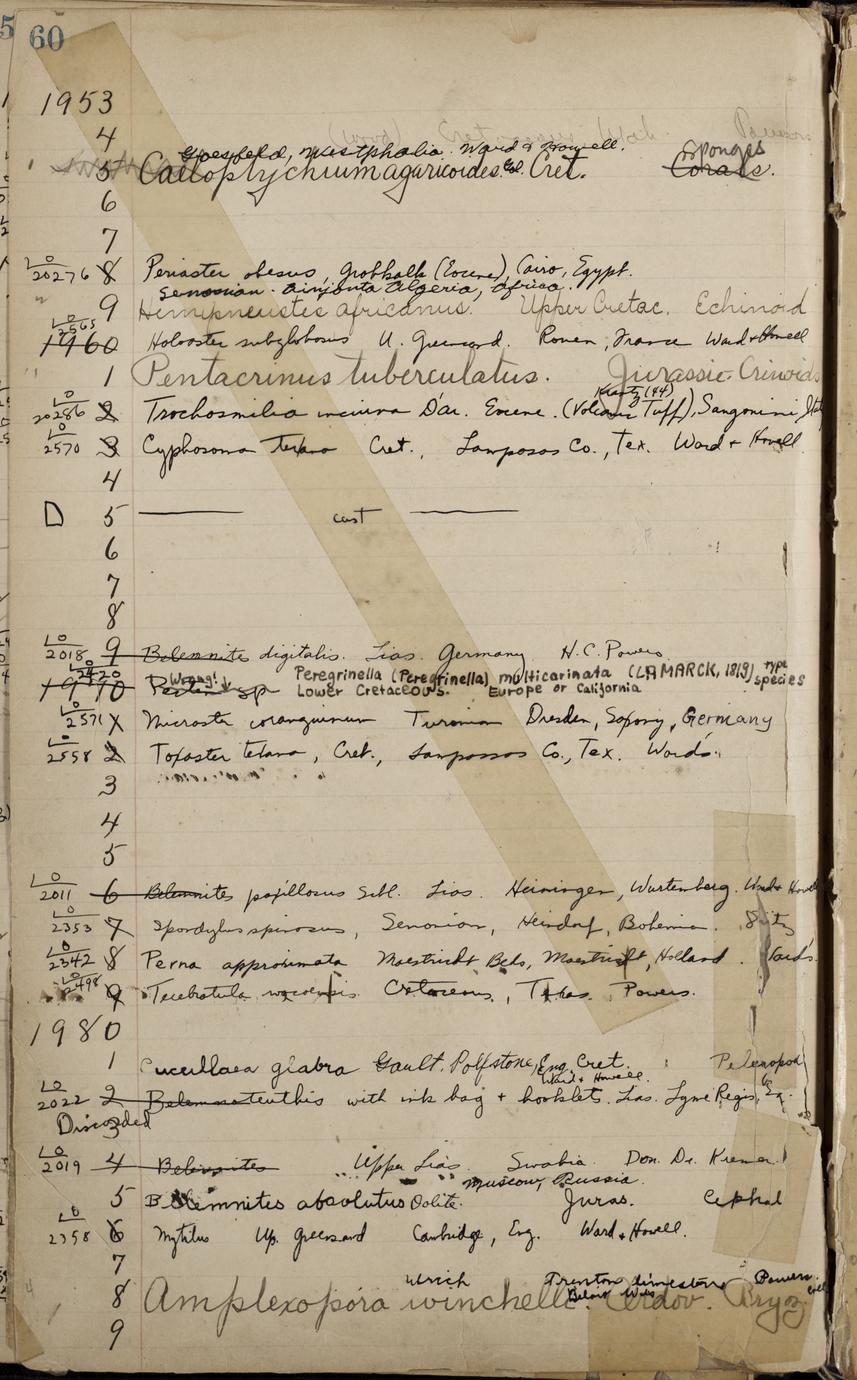 60
1953
4
Coesfeld, Westphalia. Ward & Howell. Sponges
5 Coeloptychium agaricoides. Gol. Cret. Corals.
6
7
LO 20276 8 Periaster obesus, Grobkalk (Eocene), Cairo, Egypt.
Senonian. Algeria, Africa.
9 Hemipneustes africanus. Upper Cretac. Echinoid
LO 2565 1960 Holaster subglobosus U. Greensand. Rouen, France Ward & Howell
1 Pentacrinus tuberculatus. Jurassic Crinoids
Krantz (44)
LO 20286 2 Trochosmilia incurva D'ar. Eocene. (Volcanic Tuff), Sangonini, Italy
LO 2570 3 Cyphosoma texana Cret., Lampasas Co., Tex. Ward & Howell
4
D 5 cast
6
7
8
LO 2018 9 Belemnites digitalis. Lias. Germany H.C. Powers
LO 2420 Wrong! Peregrinella (Peregrinella) multicarinata (LAMARCK, 1819) type species
1970 Pecten sp Lower Cretaceous. Europe or California
LO 2571 1 Micraster coranguinum Turonian Dresden, Saxony, Germany
LO 2558 2 Toxaster texana, Cret., Lampasas Co., Tex. Ward's.
3
4
5
LO 2011 6 Belemnites papillosus Schl. Lias. Heiningen, Wurtemberg. Ward & Howell
LO 2353 7 Spondylus spinosus, Senonian, Bohemia.
LO 2342 8 Perna approximata Maestricht Beds, Maestricht, Holland. Ward's.
LO 2498 9 Terebratula wacoensis Cretaceous, Texas. Powers.
1980
1 Cucullaea glabra Gault. Folfstone, Eng. Cret. Pelecypod
Ward & Howell.
LO 2022 2 Belemnoteuthis with ink bag & hooklets. Lias. Lyme Regis, Eng.
Discarded 3
LO 2019 4 Belemnites Upper Lias. Swabia. Don. Dr. Kremer
Muscow, Russia.
5 Belemnites absolutus Oolite. Juras. Cephal
LO 2358 6 Mytilus Up. Greensand Cambridge, Eng. Ward & Howell.
7
Ulrich Trenton limestone Powers coll
Beloit Wis
8 Amplexopora winchelli. Ordov. Bryoz
9